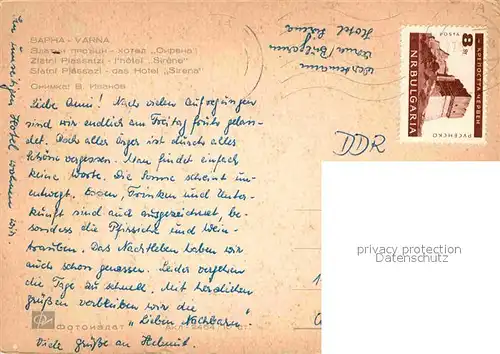 ВАРНА - VARNA
Златни пясъци - хотел „Сирена"
Zlatni Piassatzi - l'hôtel „Sirène"
Slatni Pjassazi - das Hotel „Sirena"
Снимка: В. Иванов
Liebe Anni! Nach vielen Aufregungen
sind wir endlich am Freitag früh gelan-
det. Doch aller Ärger ist durch alles
Schöne vergessen. Man findet einfach
keine Worte. Die Sonne scheint un-
entwegt. Essen, Trinken und Unter-
kunft sind auch ausgezeichnet, be-
sonders die Pfirsiche und Wein-
trauben. Das Nachtleben haben wir
auch schon genossen. Leider vergehen
die Tage zu schnell. Mit herzlichen
grüßen verbleiben wir die
„Lieben Nachbarn"
Viele grüße an Helmut.
In diesem Hotel wohnen wir.
Hotel Sirena
Varna Bulgarien
DDR
8 ст
N.R.BULGARIA
КРЕПОСТТА ЧЕРВЕН
РУСЕНСКО
privacy protection
www.oldthing.de
ФОТОИЗДАТ